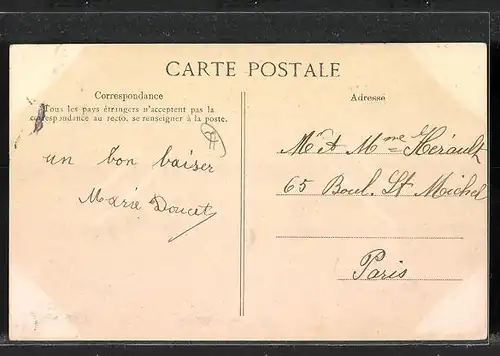 CARTE POSTALE
Correspondance
Tous les pays étrangers n'acceptent pas la
correspondance au recto, se renseigner à la poste.
un bon baiser
Marie Doucet
Adresse
Mr et Mme Hérault
65 Boul. St Michel
Paris